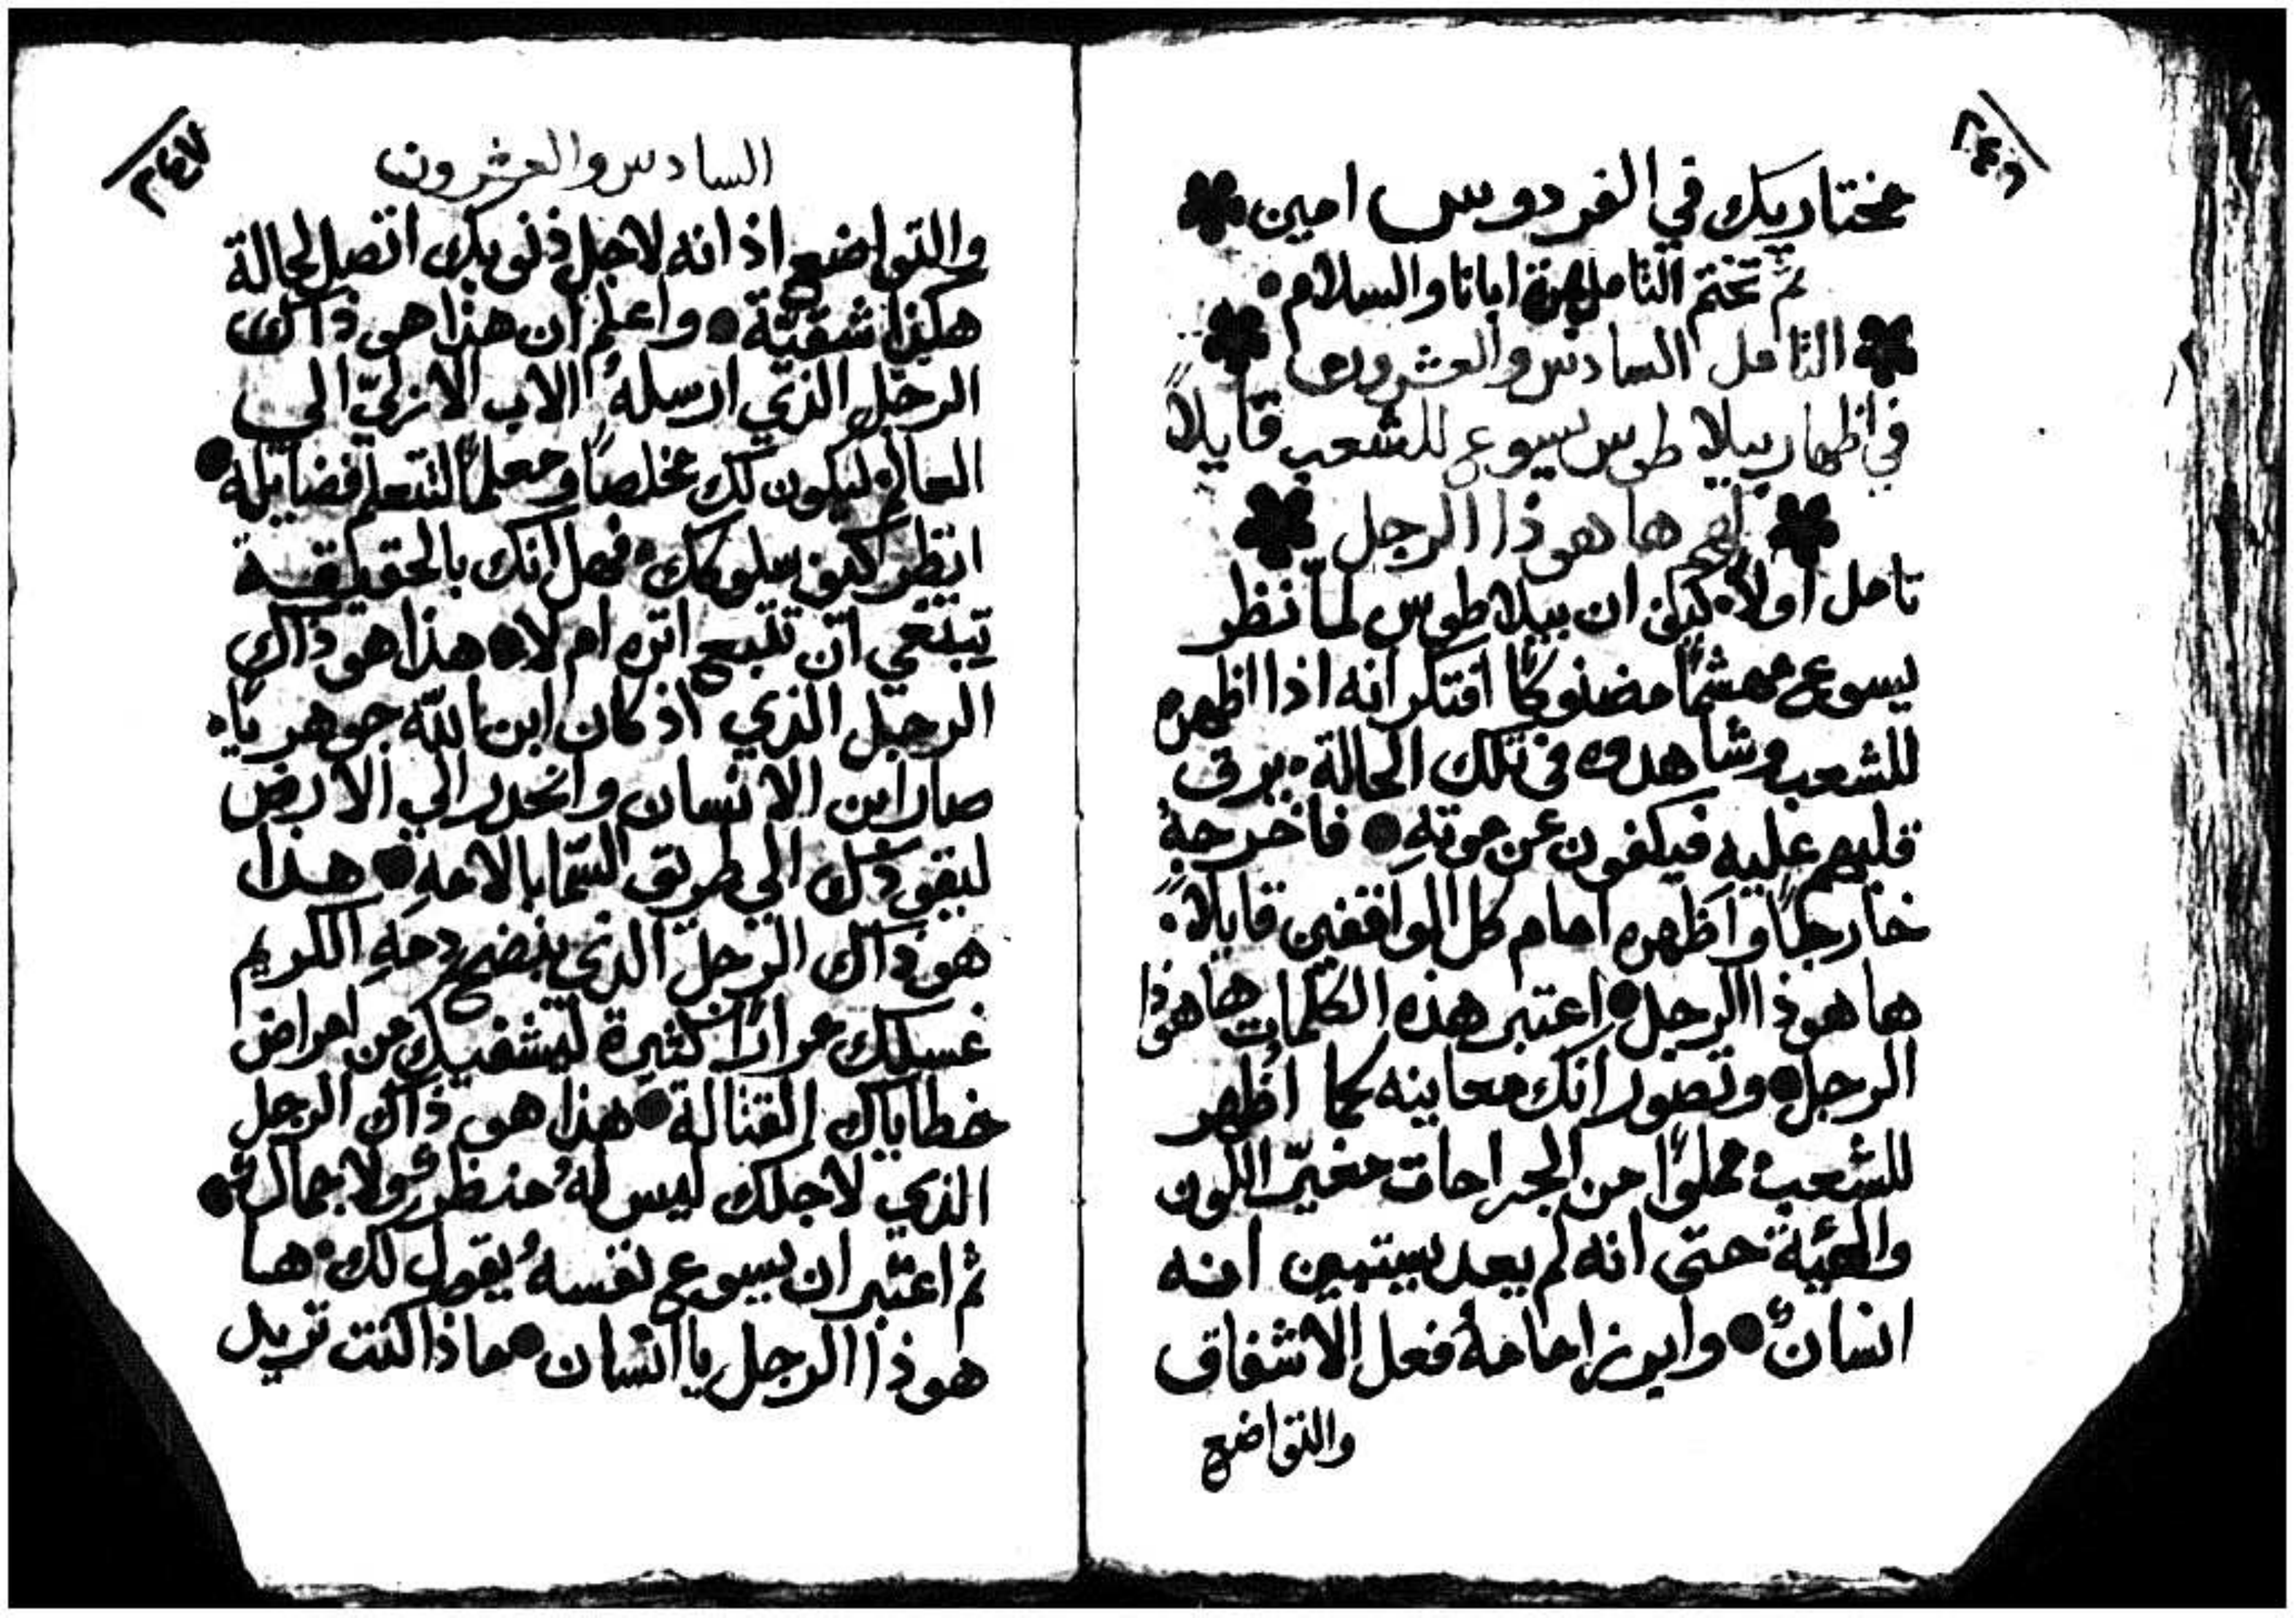 ٢٤٦
مختاريك في الفردوس امين
ثم تختم التامل بمرة ابانا والسلام
التامل السادس والعشرون
في اظهار بيلاطوس يسوع للشعب قايلاً
لهم ها هوذا الرجل
تامل اولاً كيف ان بيلاطوس لما نظر
يسوع مهشمًا مضنوكًا افتكر انه اذا اظهره
للشعب وشاهدوه في تلك الحالة يرق
قلبهم عليه فيكفون عن موتهِ فاخرجهُ
خارجًا واظهره امام كل الواقفين قايلاً
ها هوذا الرجل اعتبر هذه الكلمات ها هوذا
الرجل وتصور انك معاينه كما اُظهر
للشعب مملوًا من الجراحات مغيّر اللون
والهيّة حتى انه لم يعد يستبين انه
انسانٌ وابرز امامهُ فعل الاشفاق
والتواضع
٢٤٧
السادس والعشرون
والتواضع اذ انه لاجل ذنوبك اتصل لحالة
هكذا شقيّة واعلم ان هذا هو ذاك
الرجل الذي ارسلهُ الاب الازليّ الي
العالم ليكون لك مخلصًا ومعلمًا لتتعلم فضايله
انظر كيف سلوكك فهل انك بالحقيقة
تبتغي ان تتبع اثره ام لا هذا هو ذاك
الرجل الذي اذ كان ابن اللّه جوهريًا
صار ابن الانسان وانحدر الي الارض
ليقودك الي طريق السّما بالامهِ هذا
هو ذاك الرجل الذي بنضح دمهِ الكريم
غسلك مرارًا كثيرة ليشفيك من امراض
خطاياك القتالة هذا هو ذاك الرجل
الذي لاجلك ليس لهُ منظرٌ ولا جمالٌ
ثم اعتبر ان يسوع نفسهُ يقول لك ها
هوذا الرجل يا انسان ماذا كنت تريد